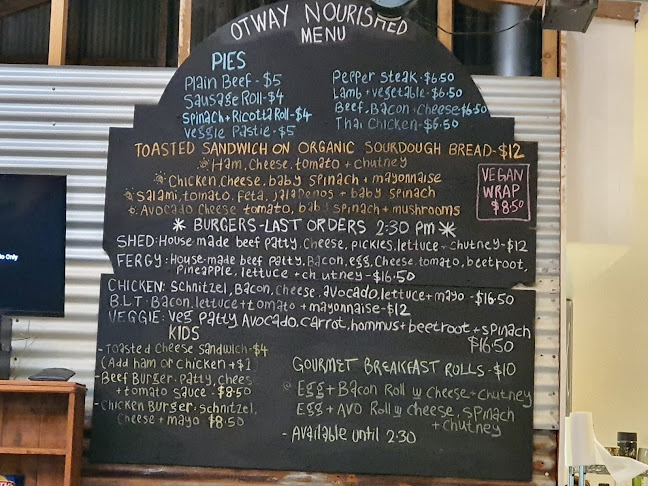 OTWAY NOURISHED
MENU
PIES
Plain Beef - $5
Sausage Roll - $4
Spinach + Ricotta Roll - $4
Veggie Pastie - $5
Pepper Steak - $6.50
Lamb + vegetable - $6.50
Beef, Bacon + Cheese $6.50
Thai Chicken - $6.50
TOASTED SANDWICH ON ORGANIC SOURDOUGH BREAD - $12
Ham, Cheese, tomato + chutney
Chicken, Cheese, baby spinach + mayonnaise
Salami, tomato, feta, jalapenos + baby spinach
Avocado Cheese tomato, baby spinach + mushrooms
VEGAN
WRAP
$8.50
* BURGERS - LAST ORDERS 2:30 PM *
SHED: House made beef patty, Cheese, pickles, lettuce + chutney - $12
FERGY: House made beef patty, Bacon, egg, Cheese, tomato, beetroot,
Pineapple, lettuce + chutney - $16.50
CHICKEN: Schnitzel, Bacon, Cheese, avocado, lettuce + mayo - $16.50
B.L.T: Bacon, lettuce + tomato + mayonnaise - $12
VEGGIE: Veg Patty Avocado, Carrot, hommus + beetroot + spinach
$16.50
KIDS
- Toasted Cheese Sandwich - $4
(Add ham or chicken + $1)
- Beef Burger: Patty, chees
+ tomato sauce - $8.50
- Chicken Burger: Schnitzel,
Cheese + mayo $8.50
GOURMET BREAKFAST ROLLS - $10
Egg + Bacon Roll w cheese + chutney
Egg + AVO Roll w cheese, spinach
+ chutney
- Available until 2:30